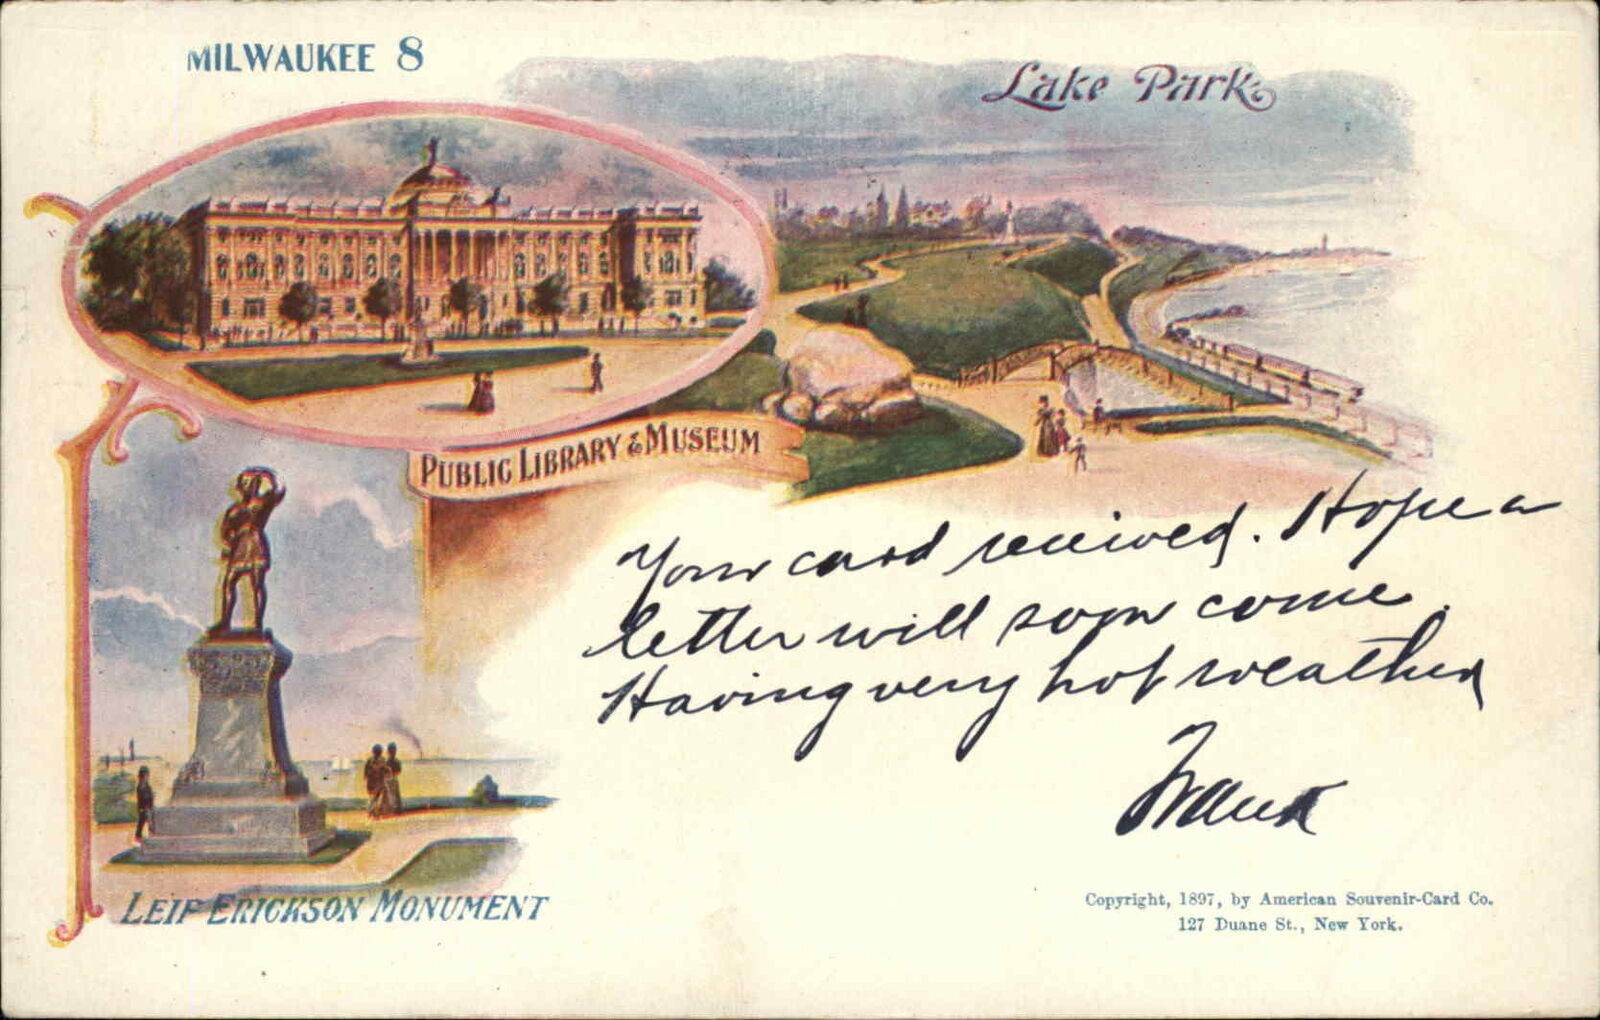 MILWAUKEE 8
Lake Park
PUBLIC LIBRARY & MUSEUM
Your card received. Hope a
letter will soon come.
Having very hot weather
Frank
LEIF ERICKSON MONUMENT
Copyright, 1897, by American Souvenir-Card Co.
127 Duane St., New York.